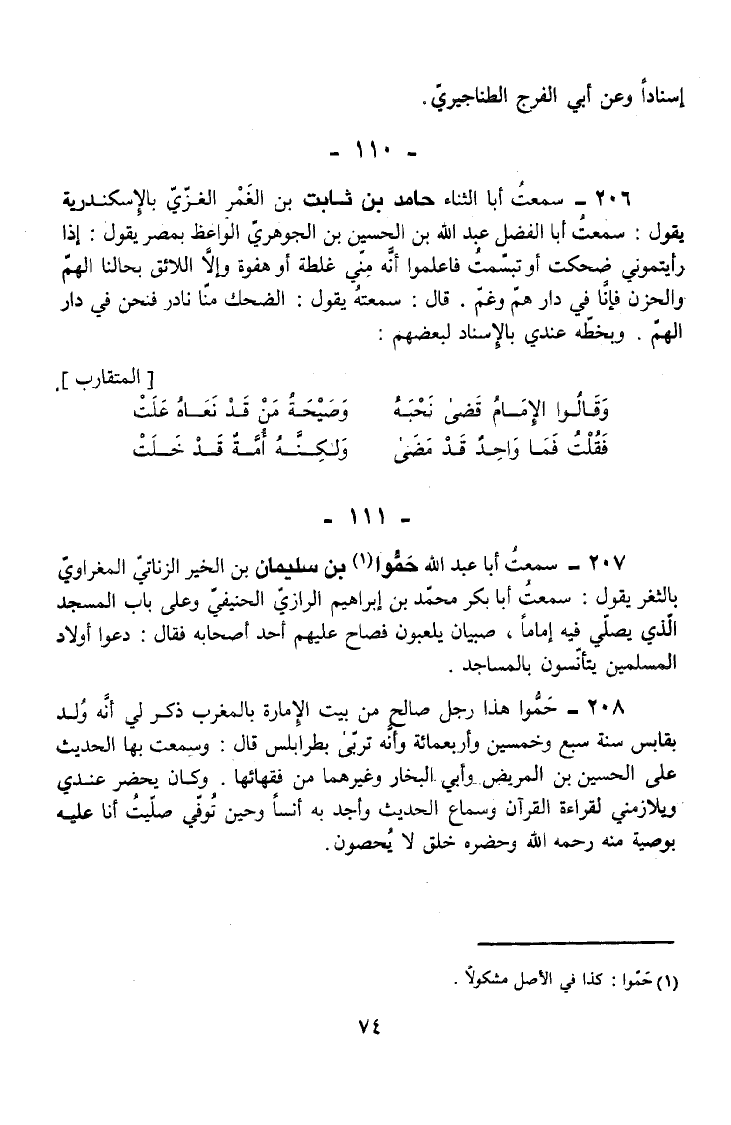 إسناداً وعن أبي الفرج الطناجيريّ.
- ١١٠ -
٢٠٦ - سمعتُ أبا الثناء حامد بن ثابت بن الغَمْر الغزّيّ بالإسكندرية
يقول : سمعتُ أبا الفضل عبد الله بن الحسين بن الجوهريّ الواعظ بمصر يقول : إذا
رأيتموني ضحكت أو تبسّمتُ فاعلموا أنَّه مِنّي غلطة أو هفوة وإلَّا اللائق بحالنا الهمّ
والحزن فإنَّا في دار همّ وغمّ . قال : سمعتهُ يقول : الضحك منّا نادر فنحن في دار
الهمّ . وبخطّه عندي بالإسناد لبعضهم :
[ المتقارب ].
وَقَالُوا الإِمَامُ قَضىٰ نَحْبَهُ وَصَيْحَةُ مَنْ قَدْ نَعَاهُ عَلَتْ
فَقُلْتُ فَمَا وَاحِدٌ قَدْ مَضَىٰ وَلٰكِنَّهُ أُمَّةٌ قَدْ خَلَتْ
- ١١١ -
٢٠٧ - سمعتُ أبا عبد الله حَمُّوا(١) بن سليمان بن الخير الزناتيّ المغراويّ
بالثغر يقول : سمعتُ أبا بكر محمّد بن إبراهيم الرازيّ الحنيفيّ وعلى باب المسجد
الّذي يصلّي فيه إماماً ، صبيان يلعبون فصاح عليهم أحد أصحابه فقال : دعوا أولاد
المسلمين يتأنّسون بالمساجد .
٢٠٨ - حَمُّوا هذا رجل صالح من بيت الإمارة بالمغرب ذكر لي أنَّه وُلد
بقابس سنة سبع وخمسين وأربعمائة وأنَّه تربّىٰ بطرابلس قال : وسمعت بها الحديث
على الحسين بن المريض وأبي البخار وغيرهما من فقهائها . وكان يحضر عندي
ويلازمني لقراءة القرآن وسماع الحديث وأجد به أنساً وحين تُوفّي صلّيتُ أنا عليه
بوصية منه رحمه الله وحضره خلق لا يُحصون.
(١) حَمّوا : كذا في الأصل مشكولاً .
٧٤